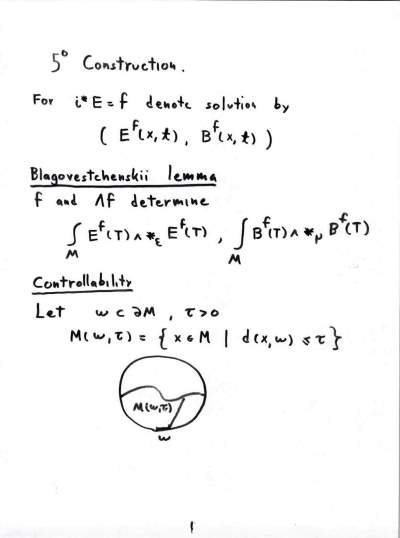 5° Construction.
For i*E = f denote solution by
( E^f(x,t), B^f(x,t) )
Blagovestchenskii lemma
f and Λf determine
∫_M E^f(T) ∧ *_ε E^f(T) , ∫_M B^f(T) ∧ *_μ B^f(T)
Controllability
Let w ⊂ ∂M , τ>0
M(w,τ) = { x ∈ M | d(x,w) ≤ τ }
M(w,τ)
w
1